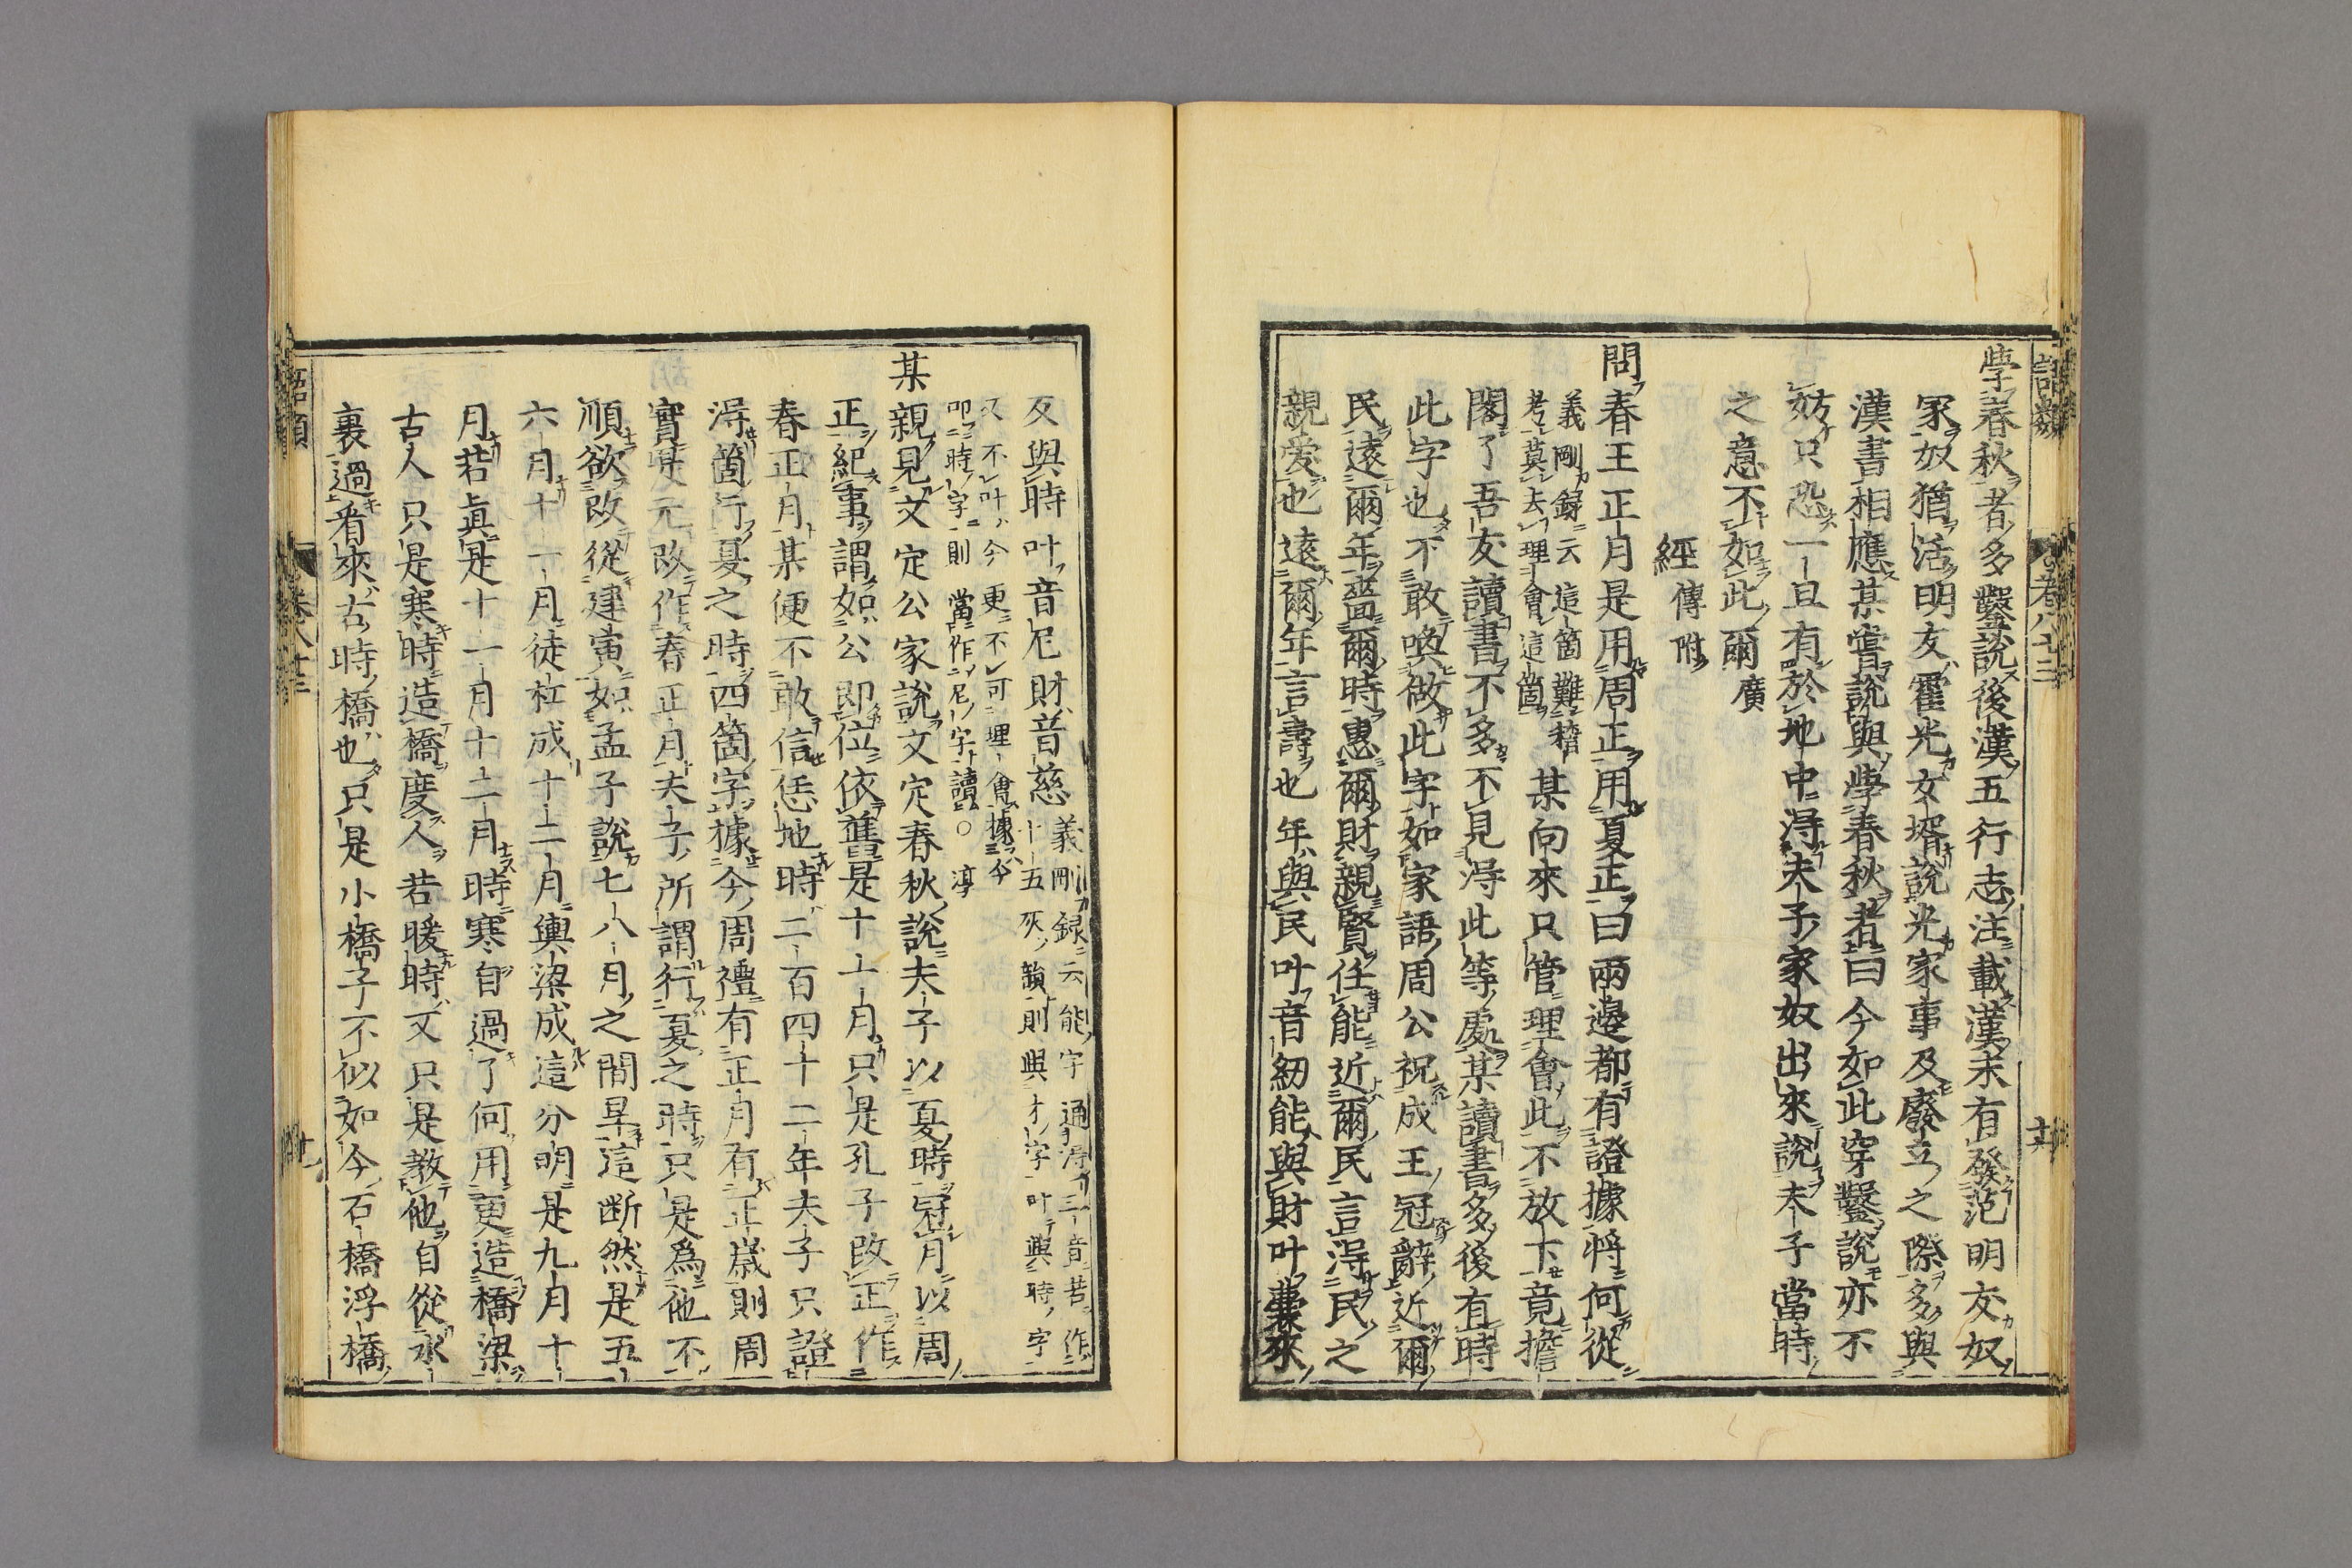 語類　卷八十三　十六
學春秋者多鑿說後漢五行志注載漢末有發范明友奴
冢奴猶活明友霍光女壻說光家事及廢立之際多與
漢書相應某嘗說與學春秋者曰今如此穿鑿說亦不
妨只恐一旦有於地中得夫子家奴出來說夫子當時
之意不如此爾廣
經傳附
問春王正月是用周正用夏正曰兩邊都有證據將何從
義剛錄云這箇難稽
考莫去理會這箇
某向來只管理會此不放下竟擔
閣了吾友讀書不多不見得此等處某讀書多後有時
此字也不敢喚做此字如家語周公祝成王冠辭近爾
民遠爾年嗇爾時惠爾財親賢任能近爾民言得民之
親愛也遠爾年言壽也年與民叶音紉能與財叶囊來
反與時叶音尼財音慈
義剛錄云能字通得三音若作
十五灰韻則與才字叶與時字
又不叶今更不可理會據今
叩時字則當作尼字讀○淳
某親見文定公家說文定春秋說夫子以夏時冠月以周
正紀事謂如公即位依舊是十一月只是孔子改正作
春正月某便不敢信恁地時二百四十二年夫子只證
得箇行夏之時四箇字據今周禮有正月有正歲則周
實是元改作春正月夫子所謂行夏之時只是爲他不
順欲改從建寅如孟子說七八月之間旱這斷然是五
六月十一月徒杠成十二月輿梁成這分明是九月十
月若眞是十一月十二月時寒自過了何用更造橋梁
古人只是寒時造橋度人若暖時又只是教他自從水
裏過看來古時橋也只是小橋子不似如今石橋浮橋
語類　卷八十三　十七